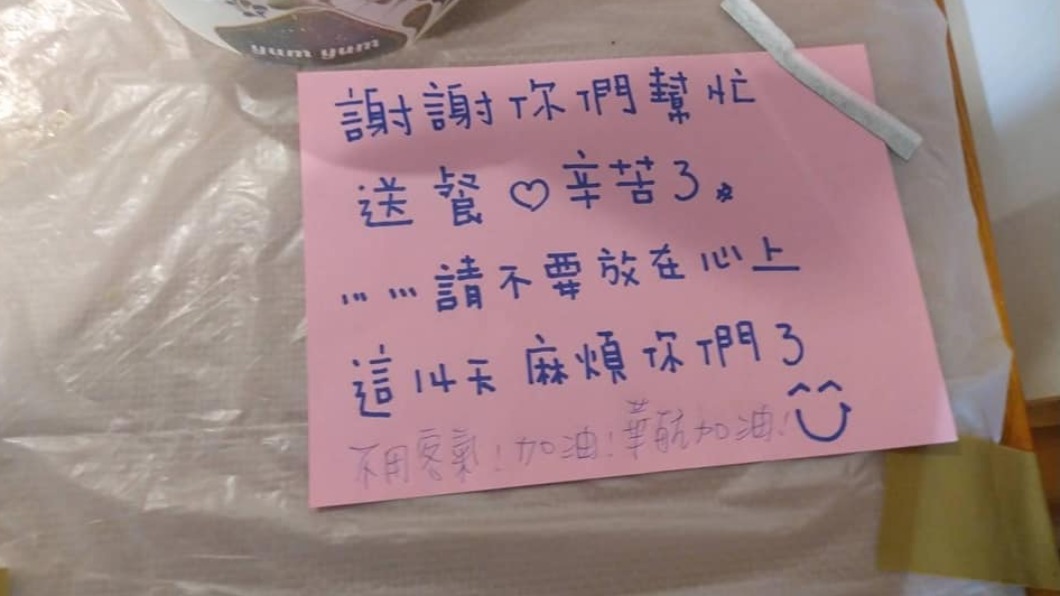 yum yum
謝謝你們幫忙
送餐♡辛苦了。
……請不要放在心上
這14天麻煩你們了
不用客氣!加油!華航加油!